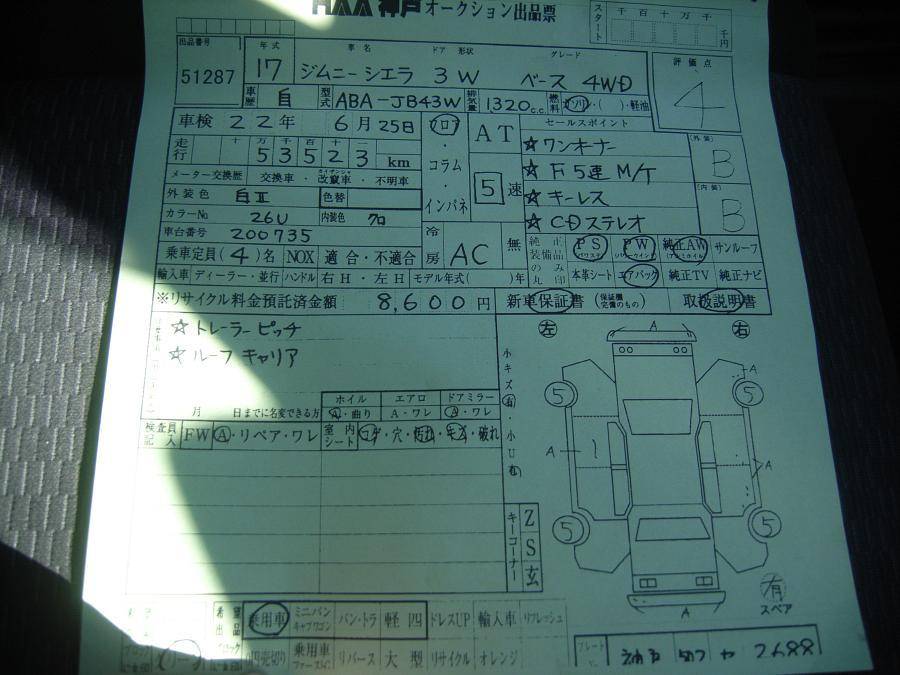 HAA神戸オークション出品票
スタート 千百十万千 千円
出品番号 年式 車名 ドア 形状 グレード 評価点
51287 17 ジムニーシエラ 3W ベース 4WD 4
車歴 自 型式 ABA-JB43W 排気量 1320c.c. 燃料 ガソリン・( )・軽油
車検 22年 6月25日 フロア AT セールスポイント 外装 B
走行 十万千百十 53523 km ・コラム・ ☆ワンオーナー
メーター交換歴 交換車・改竄車・不明車 インパネ 5速 ☆F5速 M/T 内装 B
外装色 白II 色替 ☆キーレス
カラーNo 26U 内装色 クロ ☆CDステレオ
車台番号 200735 冷房 AC 無 純正品の装備品のみ丸印 PS PW 純正AW サンルーフ
乗車定員(4)名 NOX 適合・不適合 本革シート エアバッグ 純正TV 純正ナビ
輸入車 ディーラー・並行 ハンドル 右H・左H モデル年式( )年
※リサイクル料金預託済金額 8,600円 新車保証書 (保証書完備のもの) 取扱説明書
☆トレーラーヒッチ
☆ルーフキャリア
左 右
A
小キズ有
小U有
A A A
5 5 5 5
ホイル エアロ ドアミラー
月 日までに名変できる方 A・曲り A・ワレ A・ワレ
検査員記入 FW A・リペア・ワレ 室内シート コゲ・穴・汚れ・キズ・破れ
キーコーナー Z S 玄
A
有
スペア
乗用車 ミニバン キャブワゴン バン・トラ 軽四 ドレスUP 輸入車 リフレッシュ
売切り 乗用車 リバース 大型 リサイクル オレンジ
プレート 2688